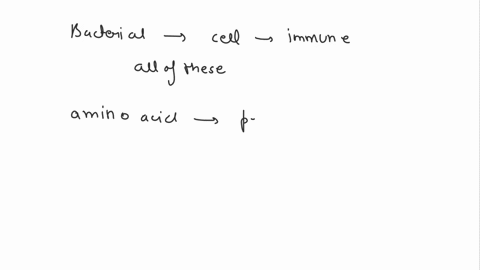 Bacterial → cell → immune
all of these
amino acid → p